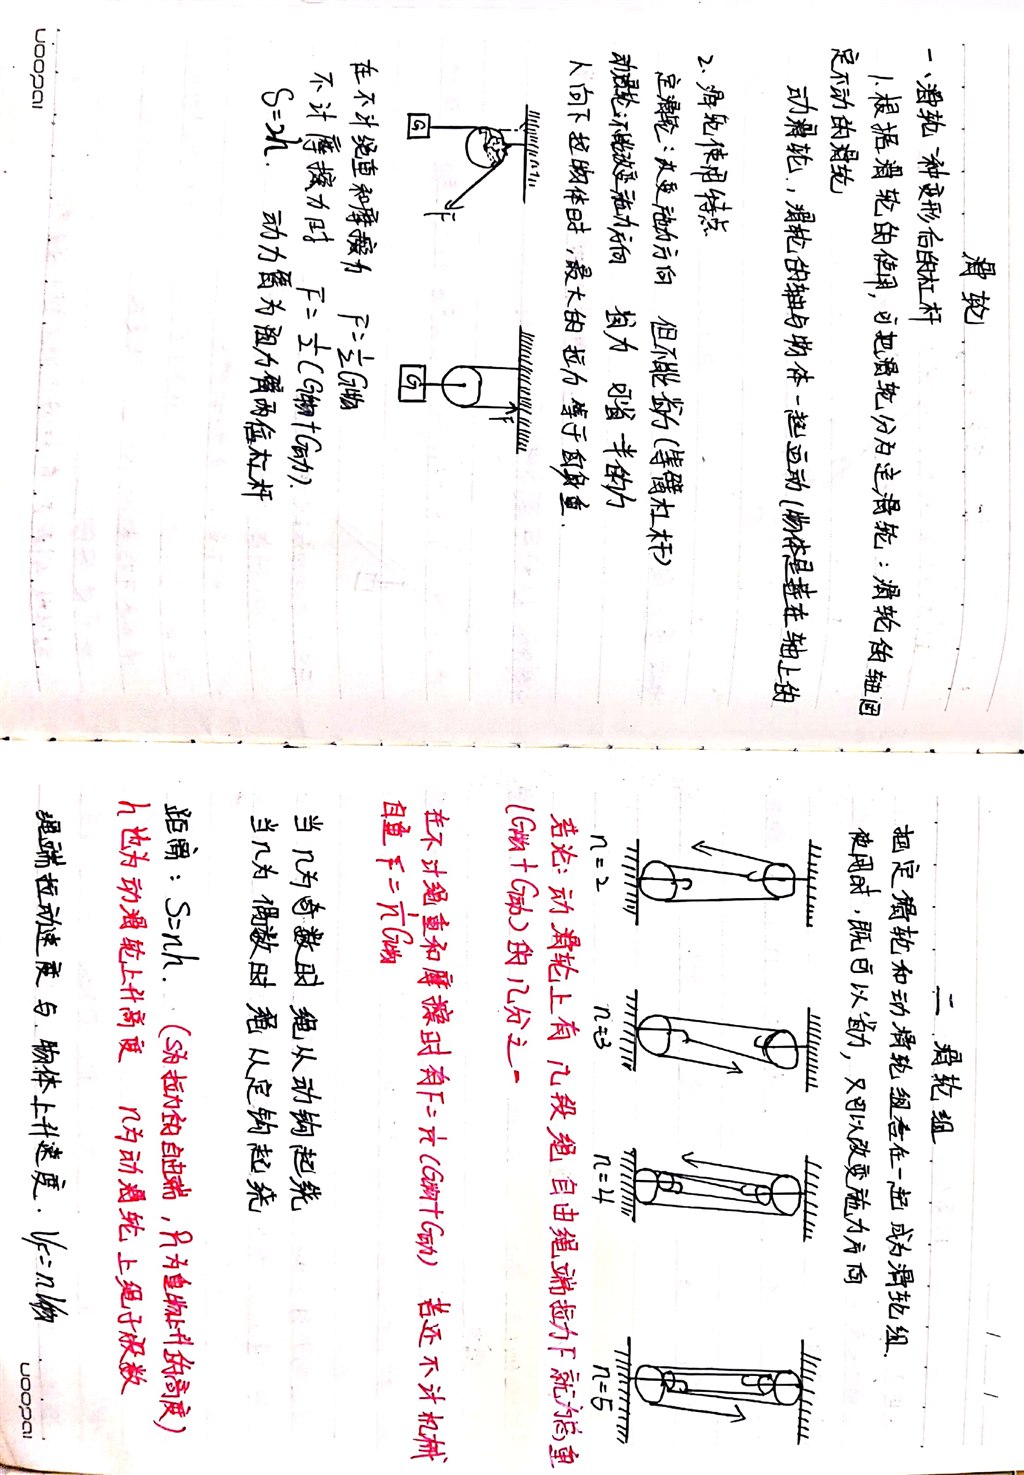 滑轮
一、滑轮 一种变形后的杠杆
1.根据滑轮的使用，可把滑轮分为定滑轮：滑轮的轴固
定不动的滑轮
动滑轮，滑轮的轴与物体一起运动(物体是挂在轴上的
2.滑轮使用特点
定滑轮：改变施力方向 但不能省力(等臂杠杆)
动滑轮：不能改变施力方向 省力 可省一半的力
人向下拉物体时，最大的拉力等于自身重.
G
F
G
F
在不计绳重和摩擦力 F=½G物
不计摩擦力时 F=½(G物+G动).
S=2h. 动力臂为阻力臂两倍杠杆
uoopai
二 滑轮组
把定滑轮和动滑轮组合在一起成为滑轮组.
使用时，既可以省力，又可以改变施力方向
n=2
n=3
n=4
n=5
结论：动滑轮上有几段绳 自由绳端拉力F就为总重
(G物+G动)的几分之一
在不计绳重和摩擦时有F=1/n(G物+G动) 若还不计机械
自重 F=1/nG物
当n为奇数时 绳从动钩起绕
当n为偶数时 绳从定钩起绕
距离：S=nh. (S为拉力的自由端，h为重物上升的高度)
h也为动滑轮上升高度 n为动滑轮上绳子段数
绳端拉动速度与物体上升速度. V_F=nV物
uoopai